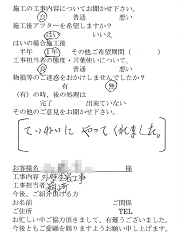 施工の工事内容についてお聞かせ下さい。
良 普通 悪い
施工後アフターを希望しますか?
はい いいえ
はいの場合施工後
半年 1年 その他ご希望期間( )
工事担当者の態度・言葉使いについて。
良 普通 悪い
物損等のご迷惑をおかけしませんでしたか?
有 無
(有)の時、後の処理は
完了 出来ていない
その他のご意見をお聞かせ下さい。
ていねいに やって くれました。
お客様名 様
工事内容 外壁塗装工事
工事担当者
今後、ご紹介頂ける方
お名前 ご関係
ご住所 TEL
お忙しい中ご協力頂きまして、有難うございました。
今後ともご愛顧を賜りますようお願い申し上げます。